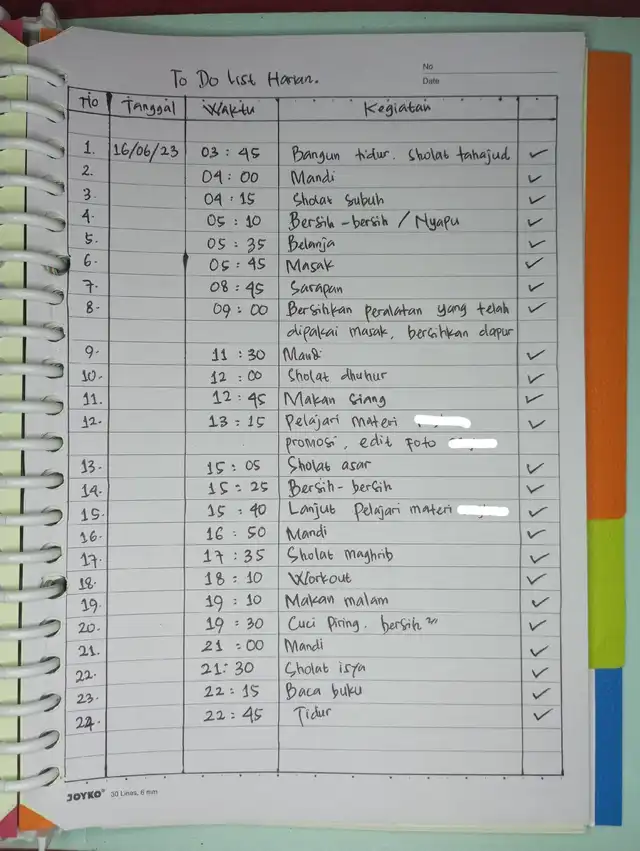 No
Date
To Do List Harian.
No Tanggal Waktu Kegiatan
1. 16/06/23 03 : 45 Bangun tidur. Sholat tahajud ✓
2. 04 : 00 Mandi ✓
3. 04 : 15 Sholat subuh ✓
4. 05 : 10 Bersih-bersih / Nyapu ✓
5. 05 : 35 Belanja ✓
6. 05 : 45 Masak ✓
7. 08 : 45 Sarapan ✓
8. 09 : 00 Bersihkan peralatan yang telah ✓
dipakai masak, bersihkan dapur
9. 11 : 30 Mandi ✓
10. 12 : 00 Sholat dhuhur ✓
11. 12 : 45 Makan siang ✓
12. 13 : 15 Pelajari materi ✓
promosi, edit foto
13. 15 : 05 Sholat asar ✓
14. 15 : 25 Bersih-bersih ✓
15. 15 : 40 Lanjut Pelajari materi ✓
16. 16 : 50 Mandi ✓
17. 17 : 35 Sholat maghrib ✓
18. 18 : 10 Workout ✓
19. 19 : 10 Makan malam ✓
20. 19 : 30 Cuci piring, bersih" ✓
21. 21 : 00 Mandi ✓
22. 21 : 30 Sholat isya ✓
23. 22 : 15 Baca buku ✓
24. 22 : 45 Tidur ✓
JOYKO 30 Lines, 6 mm